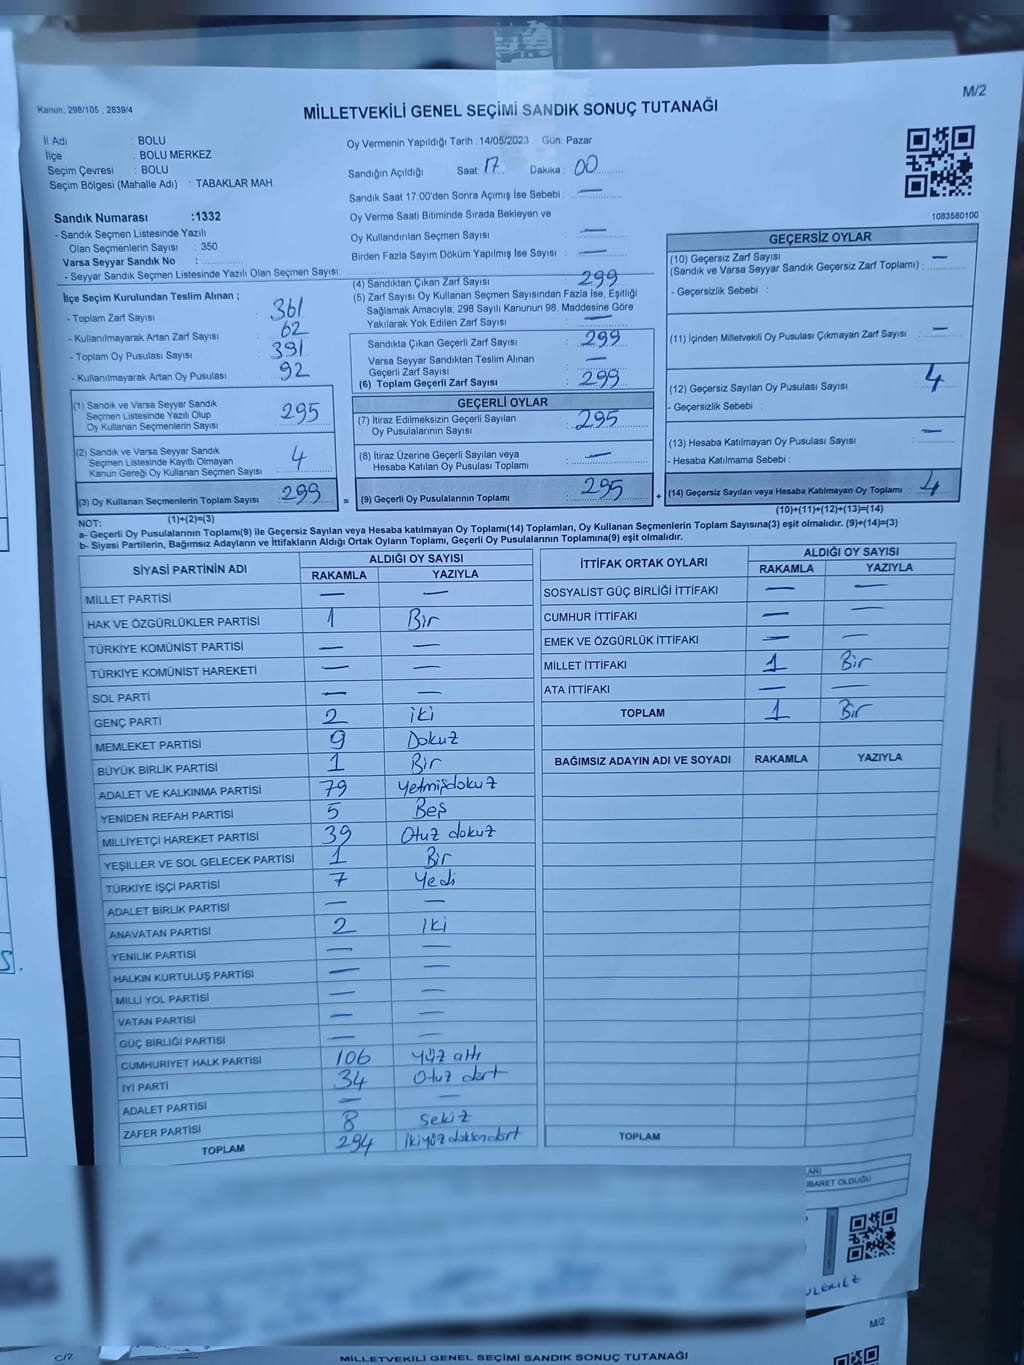 Kanun, 298/105 , 2839/4
M/2
MİLLETVEKİLİ GENEL SEÇİMİ SANDIK SONUÇ TUTANAĞI
İl Adı : BOLU
İlçe : BOLU MERKEZ
Seçim Çevresi : BOLU
Seçim Bölgesi (Mahalle Adı) : TABAKLAR MAH
Sandık Numarası :1332
- Sandık Seçmen Listesinde Yazılı
Olan Seçmenlerin Sayısı : 350
Varsa Seyyar Sandık No :
- Seyyar Sandık Seçmen Listesinde Yazılı Olan Seçmen Sayısı:
Oy Vermenin Yapıldığı Tarih : 14/05/2023 Gün: Pazar
Sandığın Açıldığı Saat: 17 Dakika : 00
Sandık Saat 17:00'den Sonra Açımış İse Sebebi : —
Oy Verme Saati Bitiminde Sırada Bekleyen ve
Oy Kullandırılan Seçmen Sayısı : —
Birden Fazla Sayım Döküm Yapılmış İse Sayısı : —
1083580100
İlçe Seçim Kurulundan Teslim Alınan ;
- Toplam Zarf Sayısı : 361
- Kullanılmayarak Artan Zarf Sayısı : 62
- Toplam Oy Pusulası Sayısı : 391
- Kullanılmayarak Artan Oy Pusulası : 92
(1) Sandık ve Varsa Seyyar Sandık
Seçmen Listesinde Yazılı Olup
Oy Kullanan Seçmenlerin Sayısı : 295
(2) Sandık ve Varsa Seyyar Sandık
Seçmen Listesinde Kayıtlı Olmayan
Kanun Gereği Oy Kullanan Seçmen Sayısı : 4
(3) Oy Kullanan Seçmenlerin Toplam Sayısı : 299
(1)+(2)=(3)
(4) Sandıktan Çıkan Zarf Sayısı : 299
(5) Zarf Sayısı Oy Kullanan Seçmen Sayısından Fazla İse, Eşitliği
Sağlamak Amacıyla, 298 Sayılı Kanunun 98. Maddesine Göre
Yakılarak Yok Edilen Zarf Sayısı : —
Sandıkta Çıkan Geçerli Zarf Sayısı : 299
Varsa Seyyar Sandıktan Teslim Alınan
Geçerli Zarf Sayısı : —
(6) Toplam Geçerli Zarf Sayısı : 299
GEÇERLİ OYLAR
(7) İtiraz Edilmeksizin Geçerli Sayılan
Oy Pusulalarının Sayısı : 295
(8) İtiraz Üzerine Geçerli Sayılan veya
Hesaba Katılan Oy Pusulası Toplamı : —
= (9) Geçerli Oy Pusulalarının Toplamı : 295
GEÇERSİZ OYLAR
(10) Geçersiz Zarf Sayısı
(Sandık ve Varsa Seyyar Sandık Geçersiz Zarf Toplamı) : —
- Geçersizlik Sebebi :
(11) İçinden Milletvekili Oy Pusulası Çıkmayan Zarf Sayısı : —
(12) Geçersiz Sayılan Oy Pusulası Sayısı : 4
- Geçersizlik Sebebi :
(13) Hesaba Katılmayan Oy Pusulası Sayısı : —
- Hesaba Katılmama Sebebi :
+ (14) Geçersiz Sayılan veya Hesaba Katılmayan Oy Toplamı : 4
(10)+(11)+(12)+(13)=(14)
NOT:
a- Geçerli Oy Pusulalarının Toplamı(9) ile Geçersiz Sayılan veya Hesaba katılmayan Oy Toplamı(14) Toplamları, Oy Kullanan Seçmenlerin Toplam Sayısına(3) eşit olmalıdır. (9)+(14)=(3)
b- Siyasi Partilerin, Bağımsız Adayların ve İttifakların Aldığı Ortak Oyların Toplamı, Geçerli Oy Pusulalarının Toplamına(9) eşit olmalıdır.
SİYASİ PARTİNİN ADI ALDIĞI OY SAYISI
RAKAMLA YAZIYLA
MİLLET PARTİSİ — —
HAK VE ÖZGÜRLÜKLER PARTİSİ 1 Bir
TÜRKİYE KOMÜNİST PARTİSİ — —
TÜRKİYE KOMÜNİST HAREKETİ — —
SOL PARTİ — —
GENÇ PARTİ 2 iki
MEMLEKET PARTİSİ 9 Dokuz
BÜYÜK BİRLİK PARTİSİ 1 Bir
ADALET VE KALKINMA PARTİSİ 79 Yetmişdokuz
YENİDEN REFAH PARTİSİ 5 Beş
MİLLİYETÇİ HAREKET PARTİSİ 39 Otuz dokuz
YEŞİLLER VE SOL GELECEK PARTİSİ 1 Bir
TÜRKİYE İŞÇİ PARTİSİ 7 Yedi
ADALET BİRLİK PARTİSİ — —
ANAVATAN PARTİSİ 2 İki
YENİLİK PARTİSİ — —
HALKIN KURTULUŞ PARTİSİ — —
MİLLİ YOL PARTİSİ — —
VATAN PARTİSİ — —
GÜÇ BİRLİĞİ PARTİSİ — —
CUMHURİYET HALK PARTİSİ 106 Yüz altı
İYİ PARTİ 34 Otuz dört
ADALET PARTİSİ — —
ZAFER PARTİSİ 8 Sekiz
TOPLAM 294 İkiyüzdoksandört
İTTİFAK ORTAK OYLARI ALDIĞI OY SAYISI
RAKAMLA YAZIYLA
SOSYALİST GÜÇ BİRLİĞİ İTTİFAKI — —
CUMHUR İTTİFAKI — —
EMEK VE ÖZGÜRLÜK İTTİFAKI — —
MİLLET İTTİFAKI 1 Bir
ATA İTTİFAKI — —
TOPLAM 1 Bir
BAĞIMSIZ ADAYIN ADI VE SOYADI RAKAMLA YAZIYLA
TOPLAM
IBARET OLDUĞU
M/2
C/2
MİLLETVEKİLİ GENEL SEÇİMİ SANDIK SONUÇ TUTANAĞI